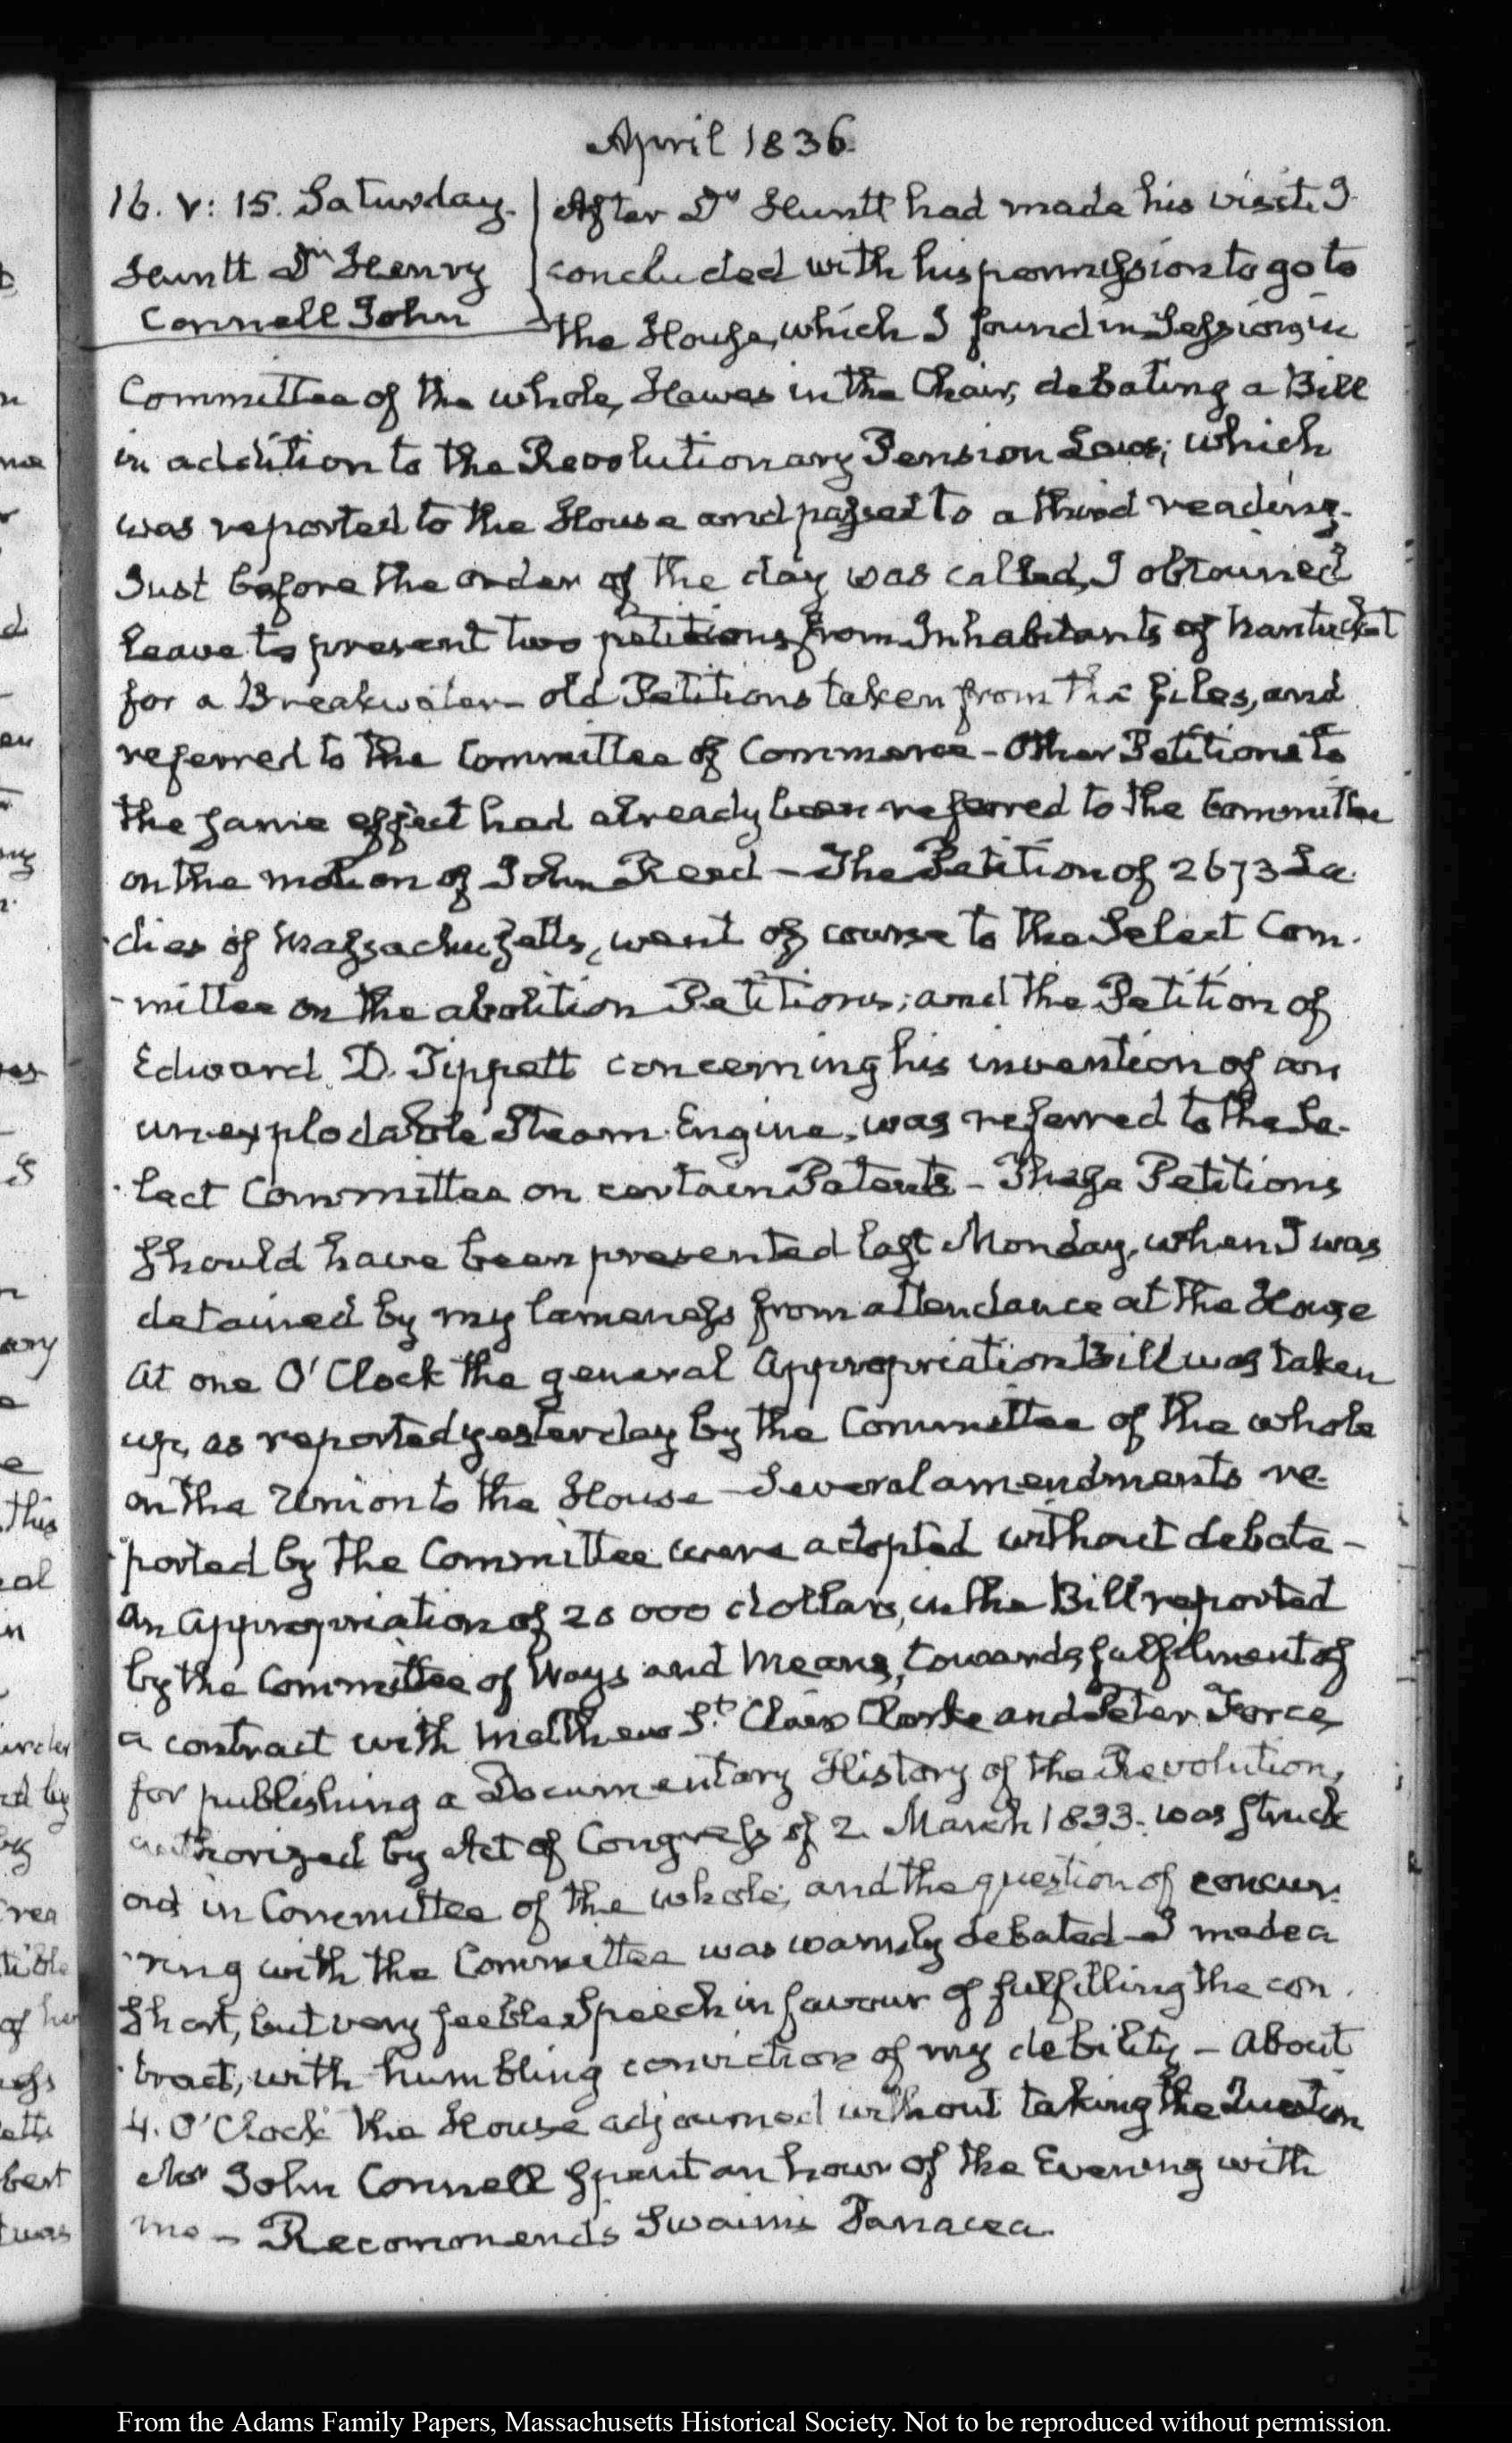 April 1836.
16. V: 15. Saturday.
Huntt Dr Henry
Connell John
After Dr Huntt had made his visit I
concluded with his permission to go to
the House, which I found in Session, in
Committee of the whole, Hawes in the Chair, debating a Bill
in addition to the Revolutionary Pension Laws; which
was reported to the House and passed to a third reading.
Just before the order of the day was called, I obtained
leave to present two petitions from Inhabitants of Nantucket
for a Breakwater- old Petitions taken from the files, and
referred to the Committee of Commerce - Other Petitions to
the same effect had already been referred to the Committee
on the motion of John Reed - The Petition of 2673 La
dies of Massachusetts, went of course to the Select Com.
-mittee on the abolition Petitions; and the Petition of
Edward D. Tippett concerning his invention of an
unexplodable Steam Engine, was referred to the Se-
lect Committee on certain Patents - These Petitions
should have been presented last Monday, when I was
detained by my lameness from attendance at the House
At one O'Clock the general Appropriation Bill was taken
up, as reported yesterday by the Committee of the whole
on the Union to the House - Several amendments re-
ported by the Committee were adopted without debate -
An appropriation of 20 000 dollars, in the Bill reported
by the Committee of Ways and Means, towards fulfilment of
a contract with Matthew St. Clair Clarke and Peter Force,
for publishing a Documentary History of the Revolution,
authorized by Act of Congress of 2. March 1833. was struck
out in Committee of the whole; and the question of concur.
ring with the Committee was warmly debated - I made a
short, but very feeble Speech in favour of fulfilling the con.
tract, with humbling conviction of my debility - About
4. O'Clock the House adjourned without taking the Question
Mr John Connell spent an hour of the Evening with
me - Recommends Swaim's Panacea.
From the Adams Family Papers, Massachusetts Historical Society. Not to be reproduced without permission.